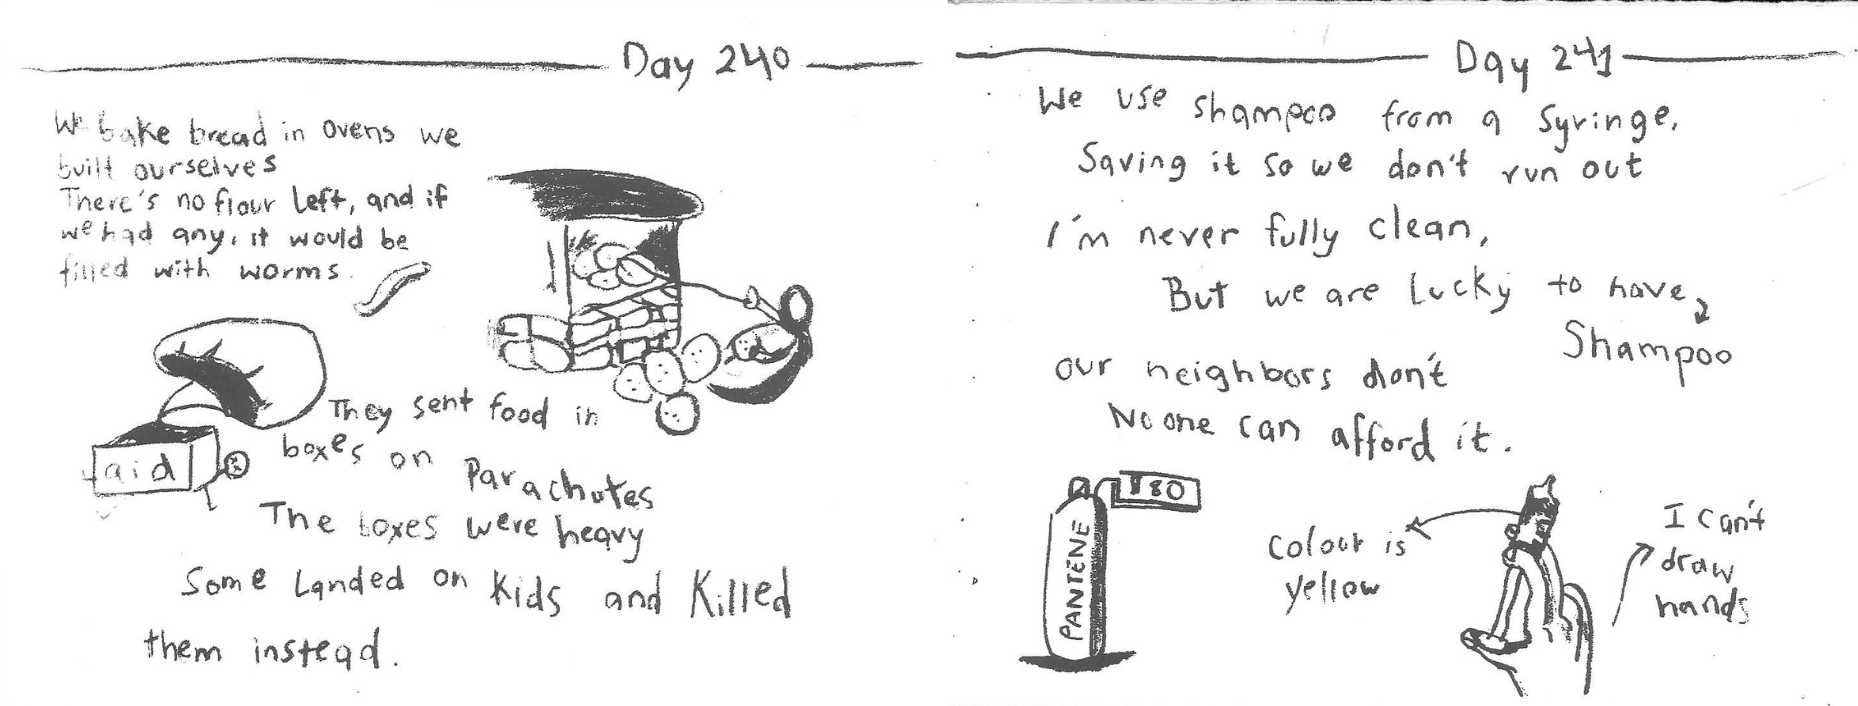 Day 240
We bake bread in ovens we
built ourselves
There's no flour left, and if
we had any, it would be
filled with worms.
They sent food in
boxes on Parachutes
aid
The boxes were heavy
Some Landed on Kids and Killed
them instead.
Day 241
We use shampoo from a syringe,
Saving it so we don't run out
I'm never fully clean,
But we are lucky to have
Shampoo
our neighbors don't
No one can afford it.
$80
PANTENE
Colour is
yellow
I can't
draw
hands